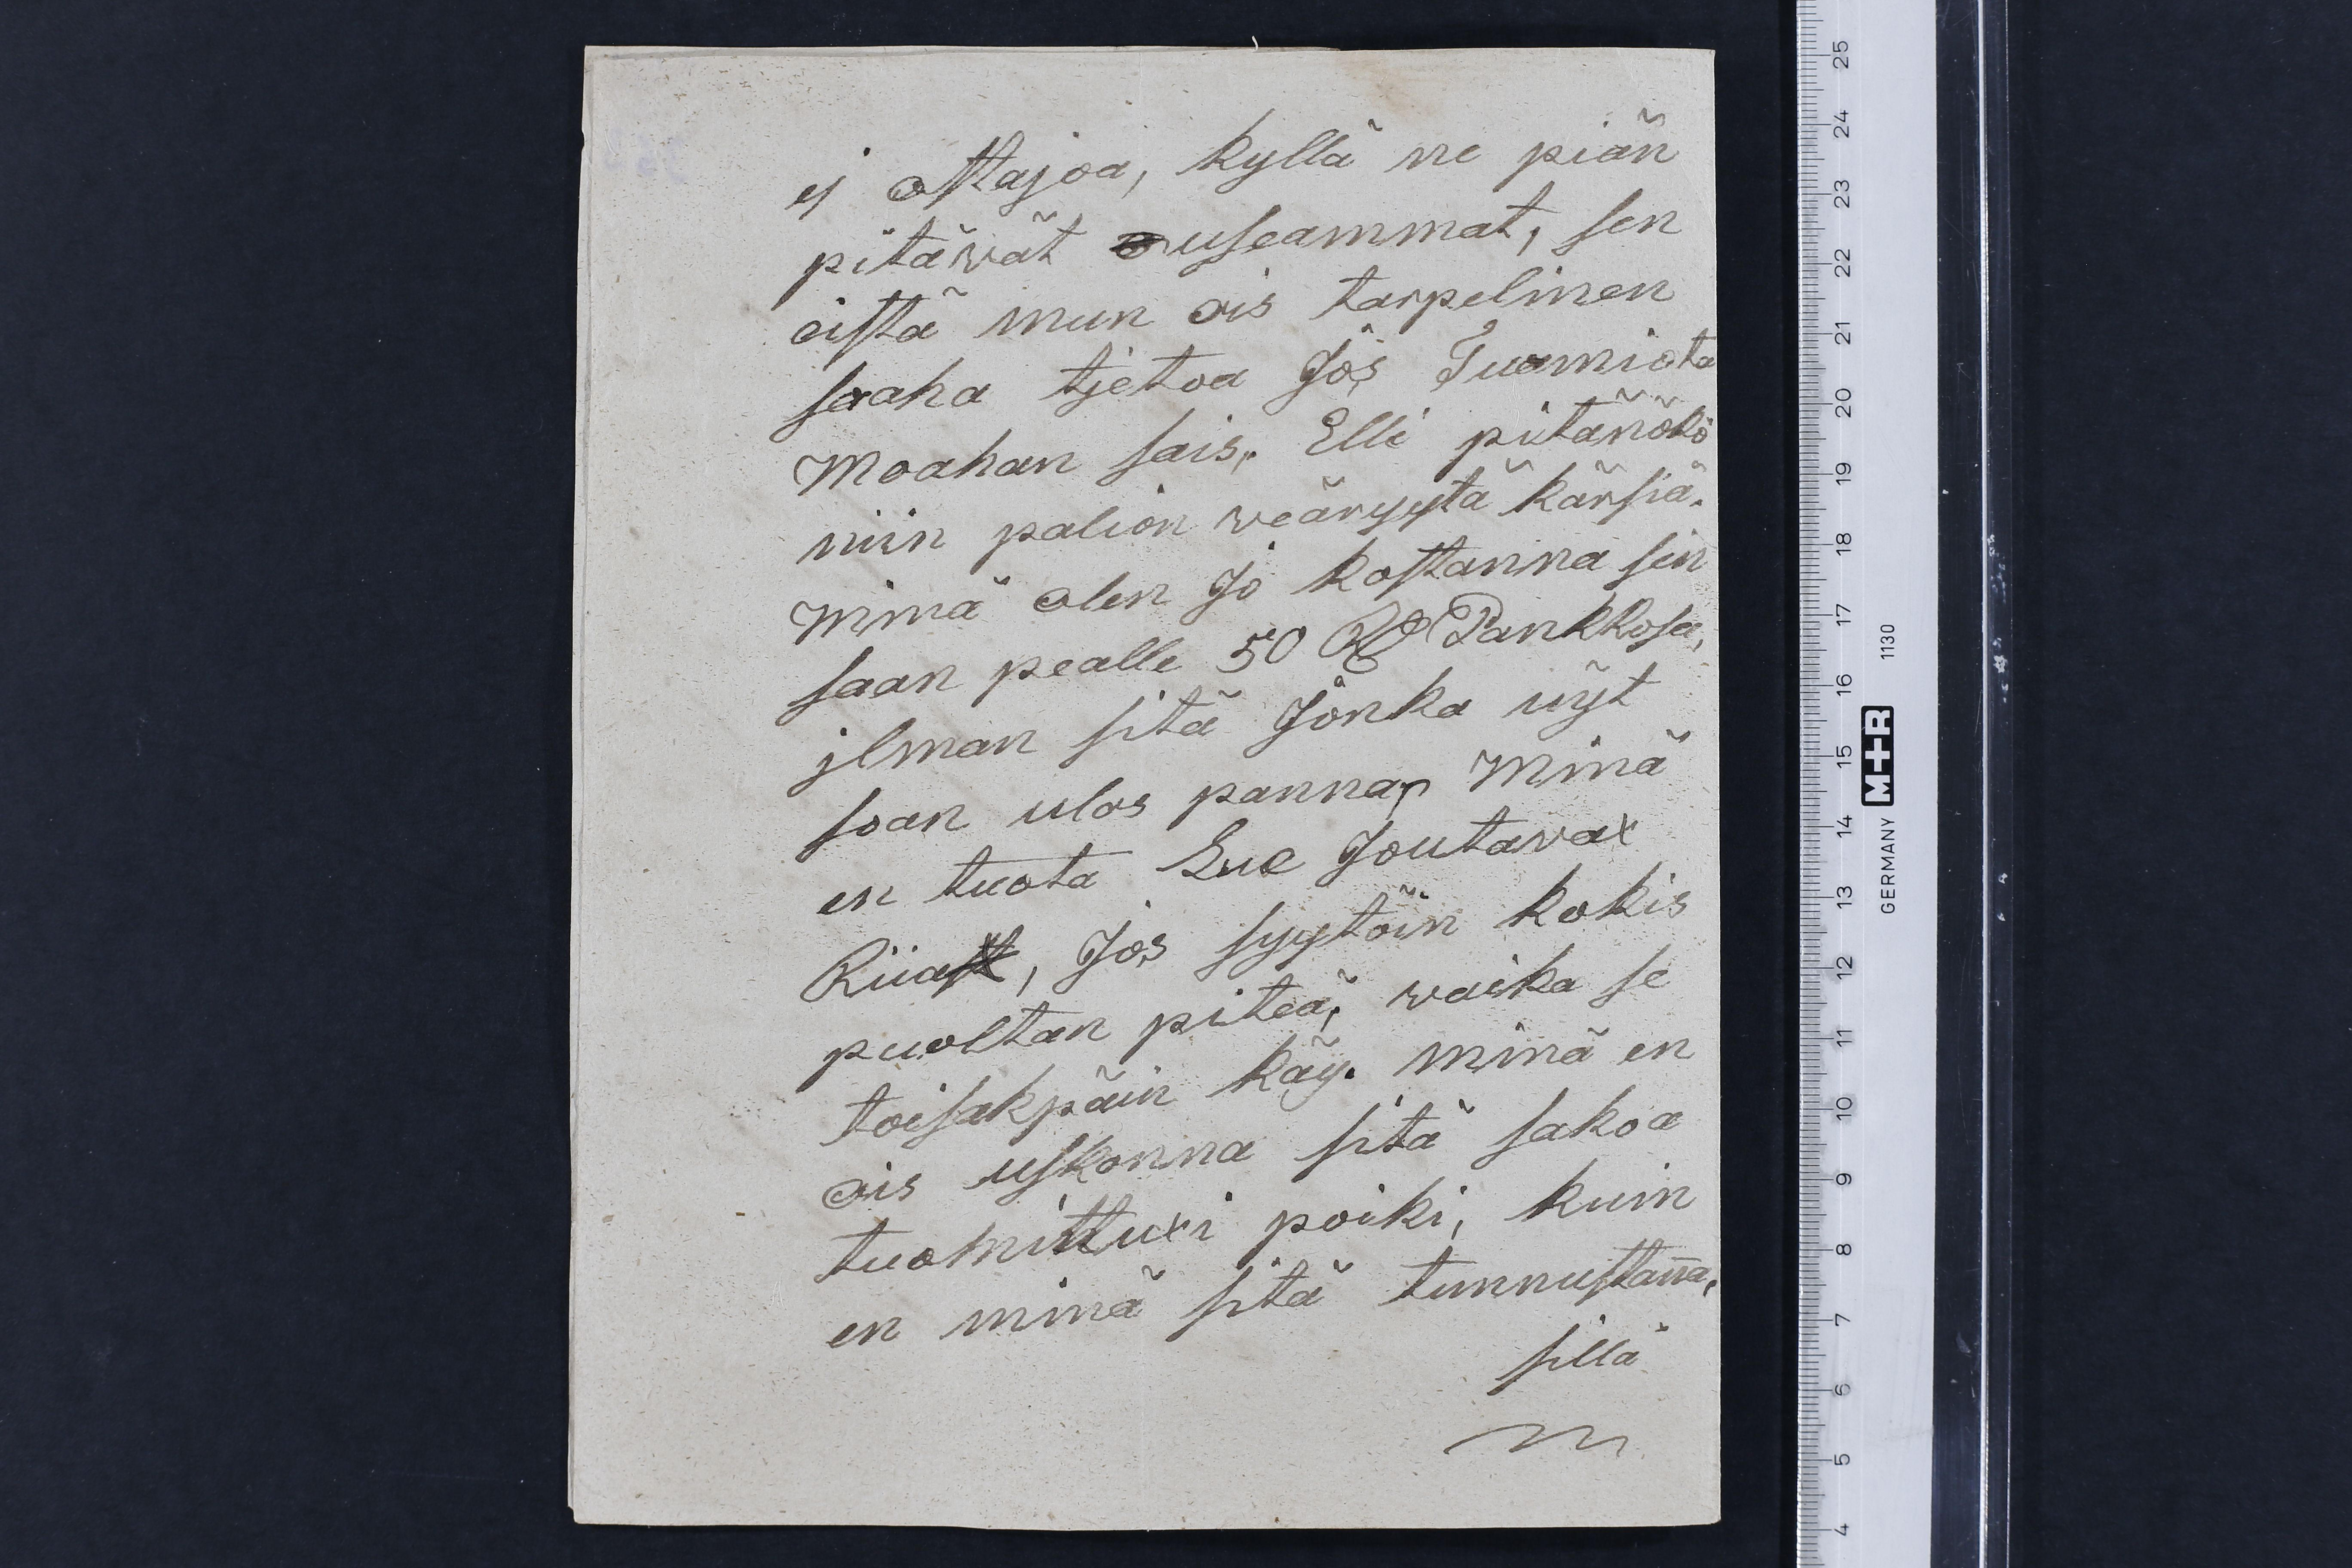 ej ottajoa, kyllä ne piän
pitäwät useammat, sen
eistä mun ois tarpelinen
saaha tjetoa Jos Tuomiota
Moahan sais. Elli pitänökö
niin palion weäryyttä kärsiä.
Minä olen Jo kostanna sen
saan pealle 50 RB Pankkosa,
jlman sitä Jonka nyt
soan ulos panna, Minä
en tuota Lue Joutavax
Riiast, Jos syytöin kokis
puoltan piteä, waika se
toisakpäin käy. minä en
ois uskonna sitä sakoa
tuomittuxi poiki, kuin
en minä sitä tunnustanna,
sillä
25
24
23
22
21
20
19
18
17
16
15
14
13
12
11
10
9
8
7
6
5
4
GERMANY M+R 1130